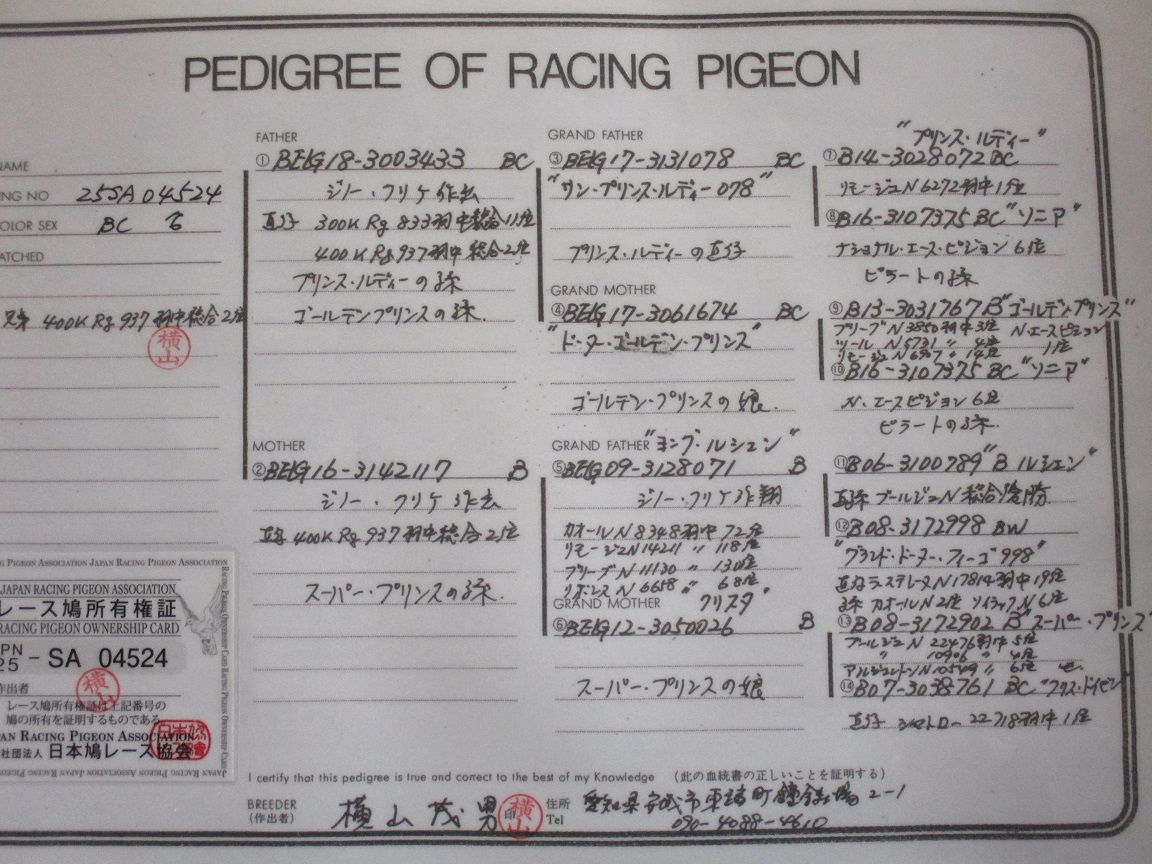 PEDIGREE OF RACING PIGEON
NAME
ING NO 25SA04524
COLOR SEX BC ♂
ATCHED
兄弟 400K Rg 937羽中総合2位
横山
FATHER
① BELG18-3003433 BC
ジノー・クリケ作出
直子 300K Rg 833羽中総合11位
400K Rg 937羽中総合2位
プリンス・ルディーの孫
ゴールデンプリンスの孫.
MOTHER
② BELG16-3142117 B
ジノー・クリケ作出
直子 400K Rg 937羽中総合2位
スーパー・プリンスの孫.
GRAND FATHER
③ BELG17-3131078 BC
"サン・プリンス・ルディー078"
プリンス・ルディーの直子
GRAND MOTHER
④ BELG17-3061674 BC
"ドーター・ゴールデン・プリンス"
ゴールデン・プリンスの娘.
GRAND FATHER "ヨンブ・ルシェン"
⑤ BELG09-3128071 B
ジノー・クリケ作翔
カオールN8348羽中72位
リモージュN14211 〃 118位
ブリーブN11130 〃 130位
リボンヌN6658 〃 68位
GRAND MOTHER "クリスタ"
⑥ BELG12-3050026 B
スーパー・プリンスの娘
"プリンス・ルディー"
⑦ B14-3028072 BC
リモージュN6272羽中1位
⑧ B16-3107375 BC "ソニア"
ナショナル・エース・ピジョン6位
ピラートの孫
⑨ B13-3031767 B "ゴールデン・プリンス"
ブリーブN3850羽中3位 N・エースピジョン
ツールN5731 〃 4位 1位
リモージュN6907 〃 14位
⑩ B16-3107375 BC "ソニア"
N・エースピジョン6位
ピラートの孫.
⑪ B06-3100789 "B ルシェン"
直子 ブールジュN総合優勝
⑫ B08-3172998 BW
"グランド・ドーター・フィーゴ998"
直子ラステレーヌN17814羽中19位
孫 カオールN2位 ソイラックN6位
⑬ B08-3172902 B "スーパー・プリンス"
ブールジュN22476羽中5位
〃 10906 〃 4位
アルジャントンN 〃 6位
⑭ B07-3038761 BC
直子 シャトロー 22718羽中1位
JAPAN RACING PIGEON ASSOCIATION
レース鳩所有権証
RACING PIGEON OWNERSHIP CARD
JPN
25 - SA 04524
作出者 横山
レース鳩所有権証は上記番号の
鳩の所有を証明するものである
JAPAN RACING PIGEON ASSOCIATION
社団法人 日本鳩レース協会
I certify that this pedigree is true and correct to the best of my Knowledge (此の血統書の正しいことを証明する)
BREEDER
(作出者) 横山茂男 印 横山
住所 愛知県安城市東端町鎌ヶ場2-1
Tel 090-4088-4610